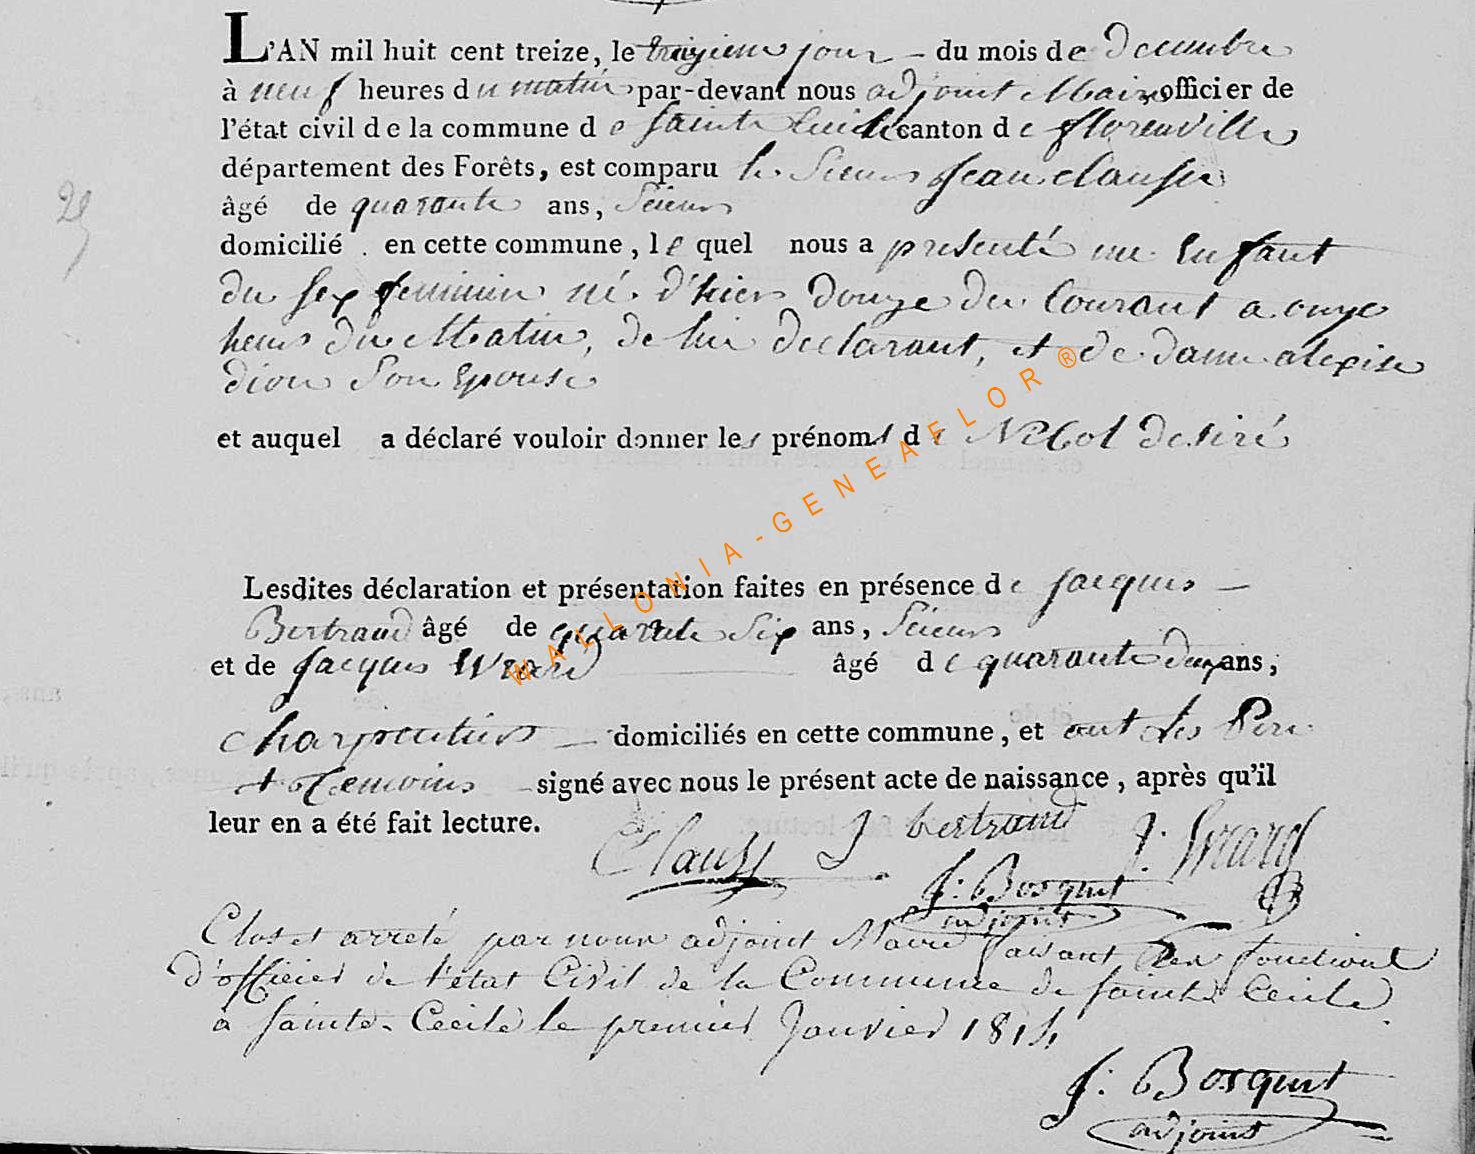 L'AN mil huit cent treize, le treizieme jour – du mois de Decembre
à neuf heures du matin par-devant nous adjoint Maire officier de
l'état civil de la commune de Sainte Cecile canton de florenville
département des Forêts, est comparu le Sieur Jean clausse
âgé de quarante ans, Scieur
domicilié en cette commune, le quel nous a presenté un Enfant
29
du sex feminin né d'hier douze du Courant a onze
heur du Matin, de lui declarant, et de dame alexise
dion Son Epouse
et auquel a déclaré vouloir donner les prénoms de desiré
Lesdites déclaration et présentation faites en présence de jacques –
Bertrand âgé de quarante Six ans, Scieur
et de jacques Evrard âgé de quarante deux ans,
charpentier – domiciliés en cette commune, et ont les Pere
et temoins – signé avec nous le présent acte de naissance, après qu'il
leur en a été fait lecture.
Clauss J bertrand J. Evrard
J: Bosquet
adjoint
Clos et arreté par nous adjoint Maire faisant les fonctions
d'officier de l'état Civil de la Commune de sainte Cecile
à sainte Cecile le premier Janvier 1814
J: Bosquet
adjoint
WALLONIA-GENEAFLOR®